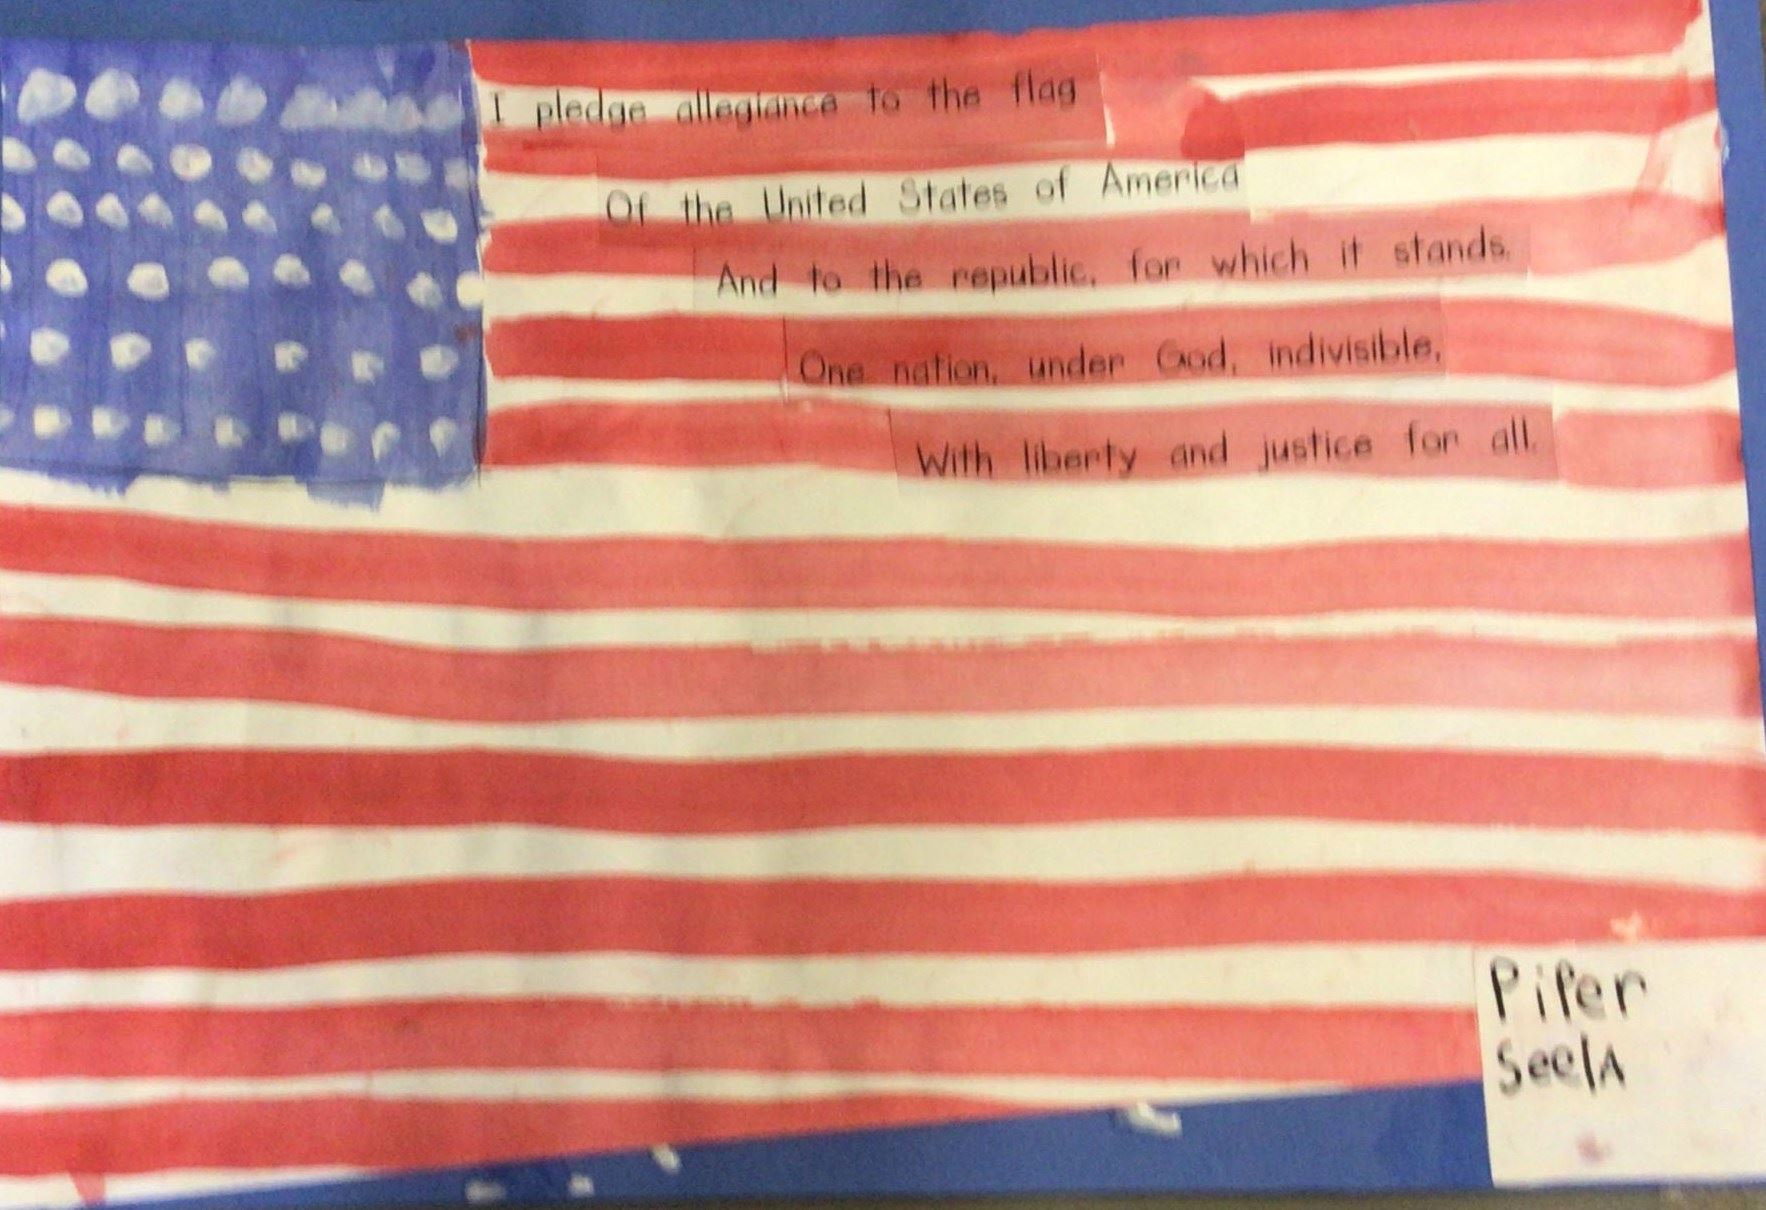 I pledge allegiance to the flag
Of the United States of America
And to the republic, for which it stands.
One nation, under God, indivisible,
With liberty and justice for all.
Pifer
Seela